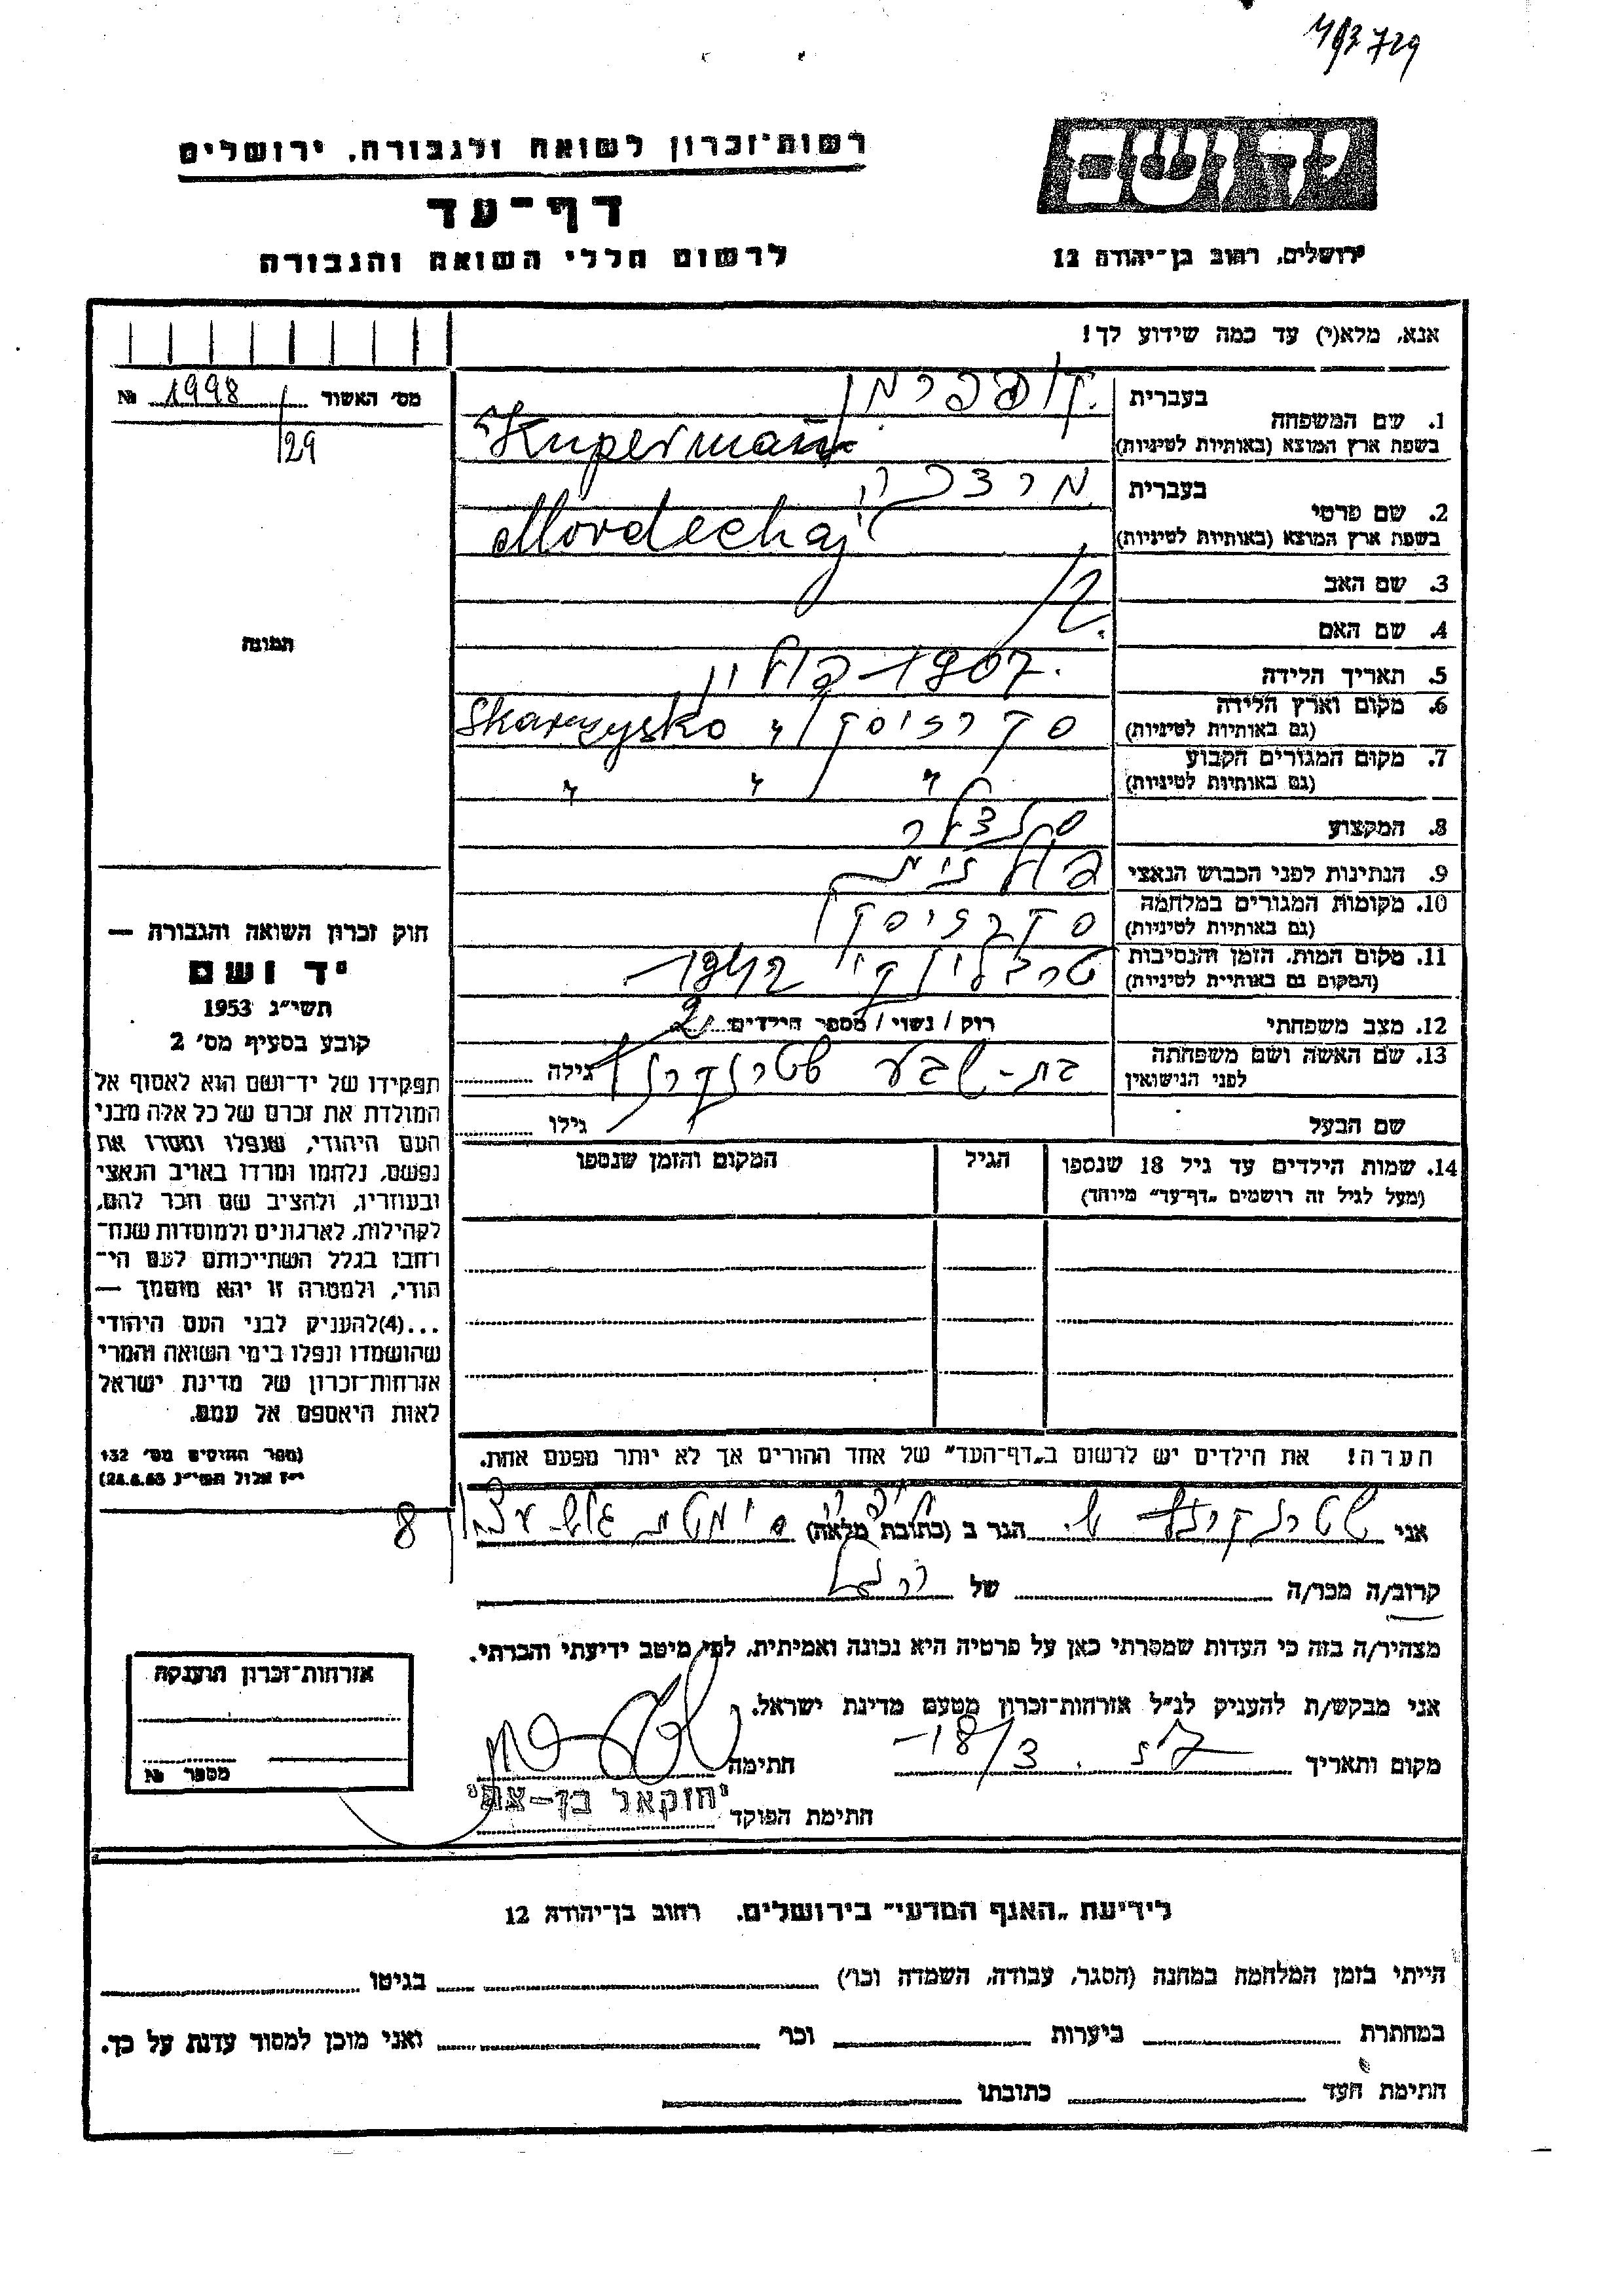 רשות־זכרון לשואה ולגבורה, ירושלים
יד ושם
דף־עד
לרשום חללי השואה והגבורה
ירושלים, רחוב בן־יהודה 12
אנא, מלא(י) עד כמה שידוע לך!
מס׳ האשור 1998 №
/29
1. שם המשפחה
בעברית קופרמן
בשפת ארץ המוצא (באותיות לטיניות) Kuperman
2. שם פרטי
בעברית מרדכי
בשפת ארץ המוצא (באותיות לטיניות) Mordechaj
3. שם האב
4. שם האם
5. תאריך הלידה 1907 פולין
6. מקום וארץ הלידה
(גם באותיות לטיניות) Skarzysko
7. מקום המגורים הקבוע
(גם באותיות לטיניות) " " "
8. המקצוע
9. הנתינות לפני הכבוש הנאצי פולנית
10. מקומות המגורים במלחמה
(גם באותיות לטיניות)
11. מקום המות, הזמן והנסיבות
(המקום גם באותיות לטיניות) 1942
12. מצב משפחתי רוק / נשוי / מספר הילדים 2
13. שם האשה ושם משפחתה
לפני הנישואין בת-שבע גילה
שם הבעל גילו
14. שמות הילדים עד גיל 18 שנספו
(מעל לגיל זה רושמים „דף־עד” מיוחד)
הגיל
המקום והזמן שנספו
הערה! את הילדים יש לרשום ב„דף־העד” של אחד ההורים אך לא יותר מפעם אחת.
תמונה
חוק זכרון השואה והגבורה —
יד ושם
תשי״ג 1953
קובע בסעיף מס׳ 2
תפקידו של יד־ושם הוא לאסוף אל
המולדת את זכרם של כל אלה מבני
העם היהודי, שנפלו ומסרו את
נפשם, נלחמו ומרדו באויב הנאצי
ובעוזריו, ולהציב שם וזכר להם,
לקהילות, לארגונים ולמוסדות שנח־
רחבו בגלל השתייכותם לעם הי־
הודי, ולמטרה זו יהא מוסמך —
...(4)להעניק לבני העם היהודי
שהושמדו ונפלו בימי השואה והמרי
אזרחות־זכרון של מדינת ישראל
לאות היאספם אל עמם.
(ספר החוקים מס׳ 132
י״ז אלול תשי״ג 28.8.53)
אני הגר ב (כתובת מלאה) 8
קרוב/ה מכר/ה של
מצהיר/ה בזה כי העדות שמסרתי כאן על פרטיה היא נכונה ואמיתית, לפי מיטב ידיעתי והכרתי.
אני מבקש/ת להעניק לנ״ל אזרחות־זכרון מטעם מדינת ישראל.
מקום ותאריך 18/3 חתימה
חתימת הפוקד יחזקאל בן-צבי
אזרחות־זכרון הוענקה
מספר №
לידיעת „האגף המדעי” בירושלים, רחוב בן־יהודה 12
הייתי בזמן המלחמה במחנה (הסגר, עבודה, השמדה וכו׳) בגיטו
במחתרת ביערות וכו׳ ואני מוכן למסור עדות על כך.
חתימת העד כתובתו